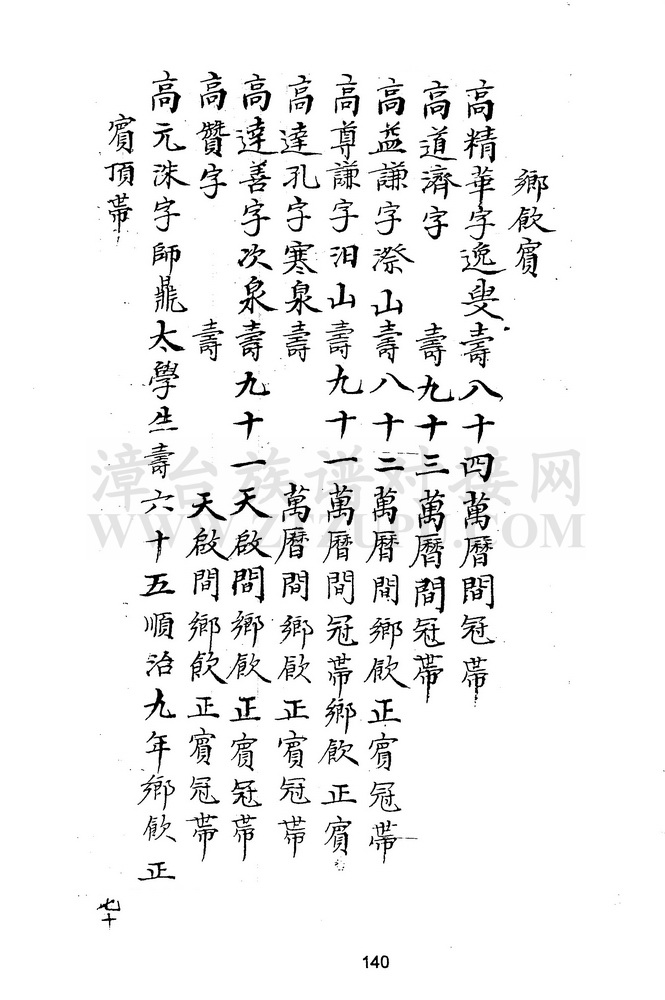 鄉飲賓
高精華字逸叟壽八十四萬曆間冠帶
高道濟字 壽九十三萬曆間冠帶
高益謙字漈山壽八十二萬曆間鄉飲正賓冠帶
高尊謙字汨山壽九十一萬曆間冠帶鄉飲正賓
高達孔字寒泉壽 萬曆間鄉飲正賓冠帶
高達善字次泉壽九十一天啟間鄉飲正賓冠帶
高贊字 壽 天啟間鄉飲正賓冠帶
高元洙字師鼎太學生壽六十五順治九年鄉飲正
賓頂帶
七十
140
漳台族谱对接网
WWW.ZTZUPU.COM